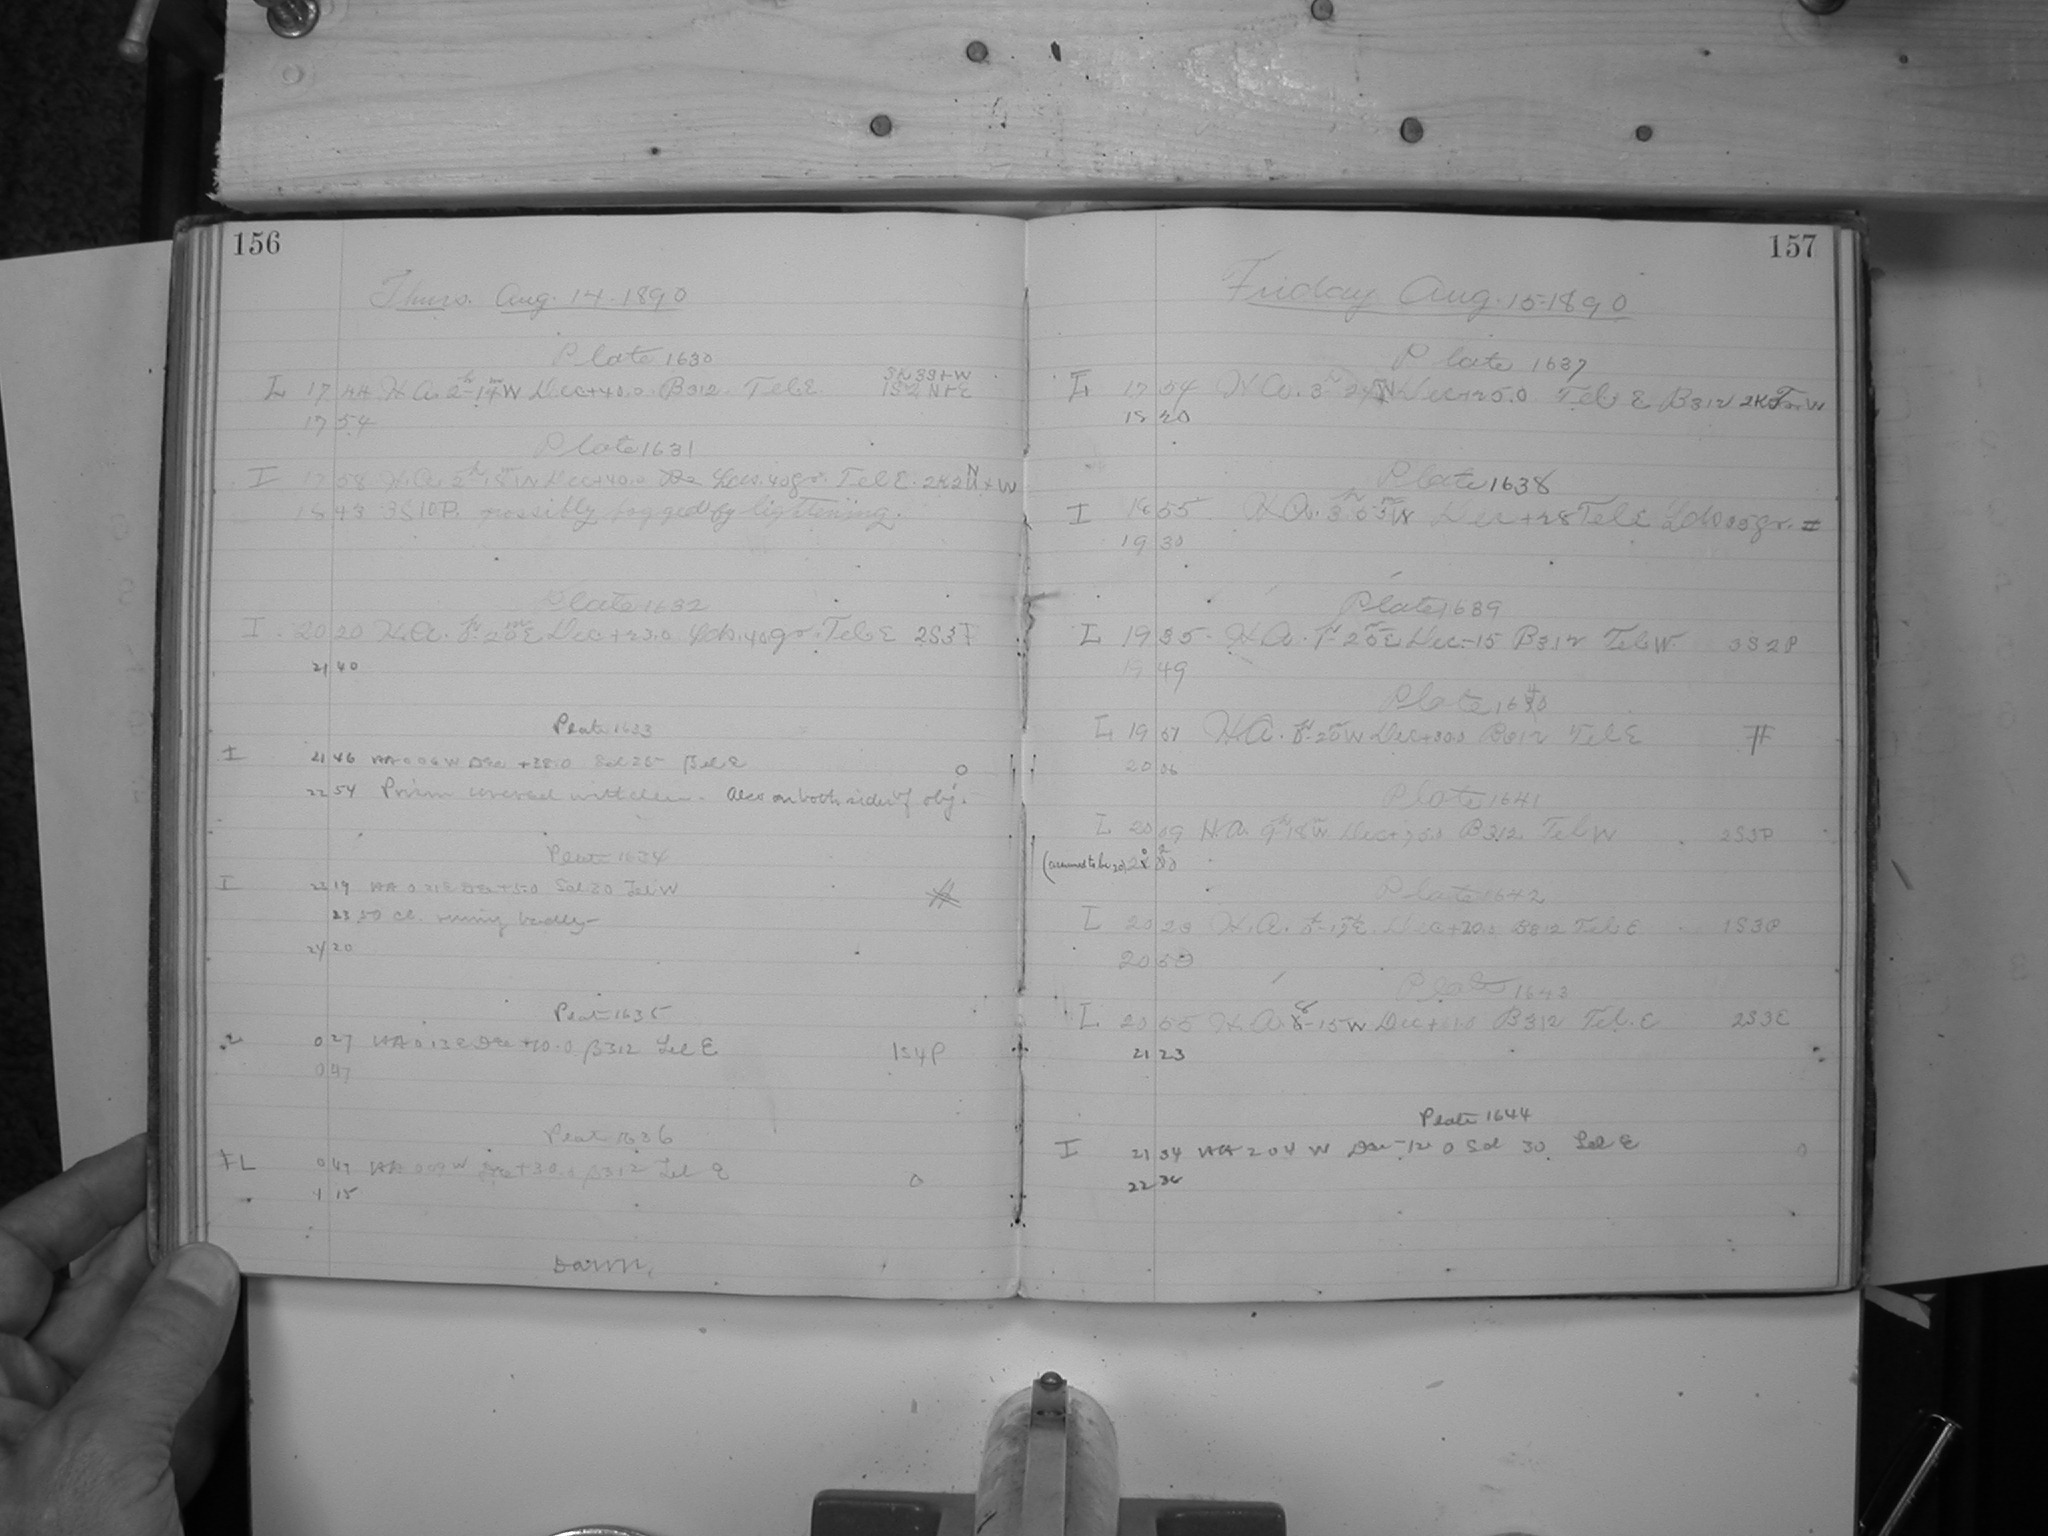 156
Thurs. Aug. 14. 1890
Plate 1630
L 17 44 H.A. 2-14 W Dec+40.0. B312. Tel E.
17 54
Plate 1631
I 17 58 H.A. W Dec+40.0 40gr. Tel E. 2K2N+W
18 43 3S10P. possibly fogged by lightening.
Plate 1632
I. 20 20 H.A. 0-20E Dec+23.0 40gr. Tel E 2S3F
21 40
Plate 1633
I 21 46 HA 0 06 W Dec +38.0 Sol 35 Tel E 0
22 54 Prism covered with dew. Also on both sides of obj.
Plate 1634
I 23 19 HA 0 21 E Dec +5.0 Sol 30 Tel W
23 50 cl. running badly
24 20
Plate 1635
0 27 HA 0 13 E Dec +10.0 B312 Tel E 1S4P
0 47
Plate 1636
IL 0 47 HA 0 09 W Dec+30.0 B312 Tel E 0
1 15
Dawn.
157
Friday Aug. 15-1890
Plate 1637
L 17 54 H.A. 3 W Dec+25.0 Tel E B312
18 20
Plate 1638
I 18 55 H.A. 3 W Dec+28 Tel E 35gr.
19 30
Plate 1639
L 19 35 H.A. 1-20E Dec-15 B312 Tel W. 3S2P
19 49
Plate 1640
L 19 57 H.A. 0-20W Dec+30.0 B312 Tel E
20 06
Plate 1641
L 20 09 H.A. W Dec B312. Tel W 2S3P
(assumed to be 20) 20
Plate 1642
L 20 23 H.A. E. Dec+20.0 B312 Tel E 1S3P
20 50
Plate 1643
L 20 55 H.A. 0-15W Dec B312 Tel. E 2S3E
21 23
Plate 1644
I 21 34 HA 2 04 W Dec -12 0 Sol 30. Tel E 0
22 34